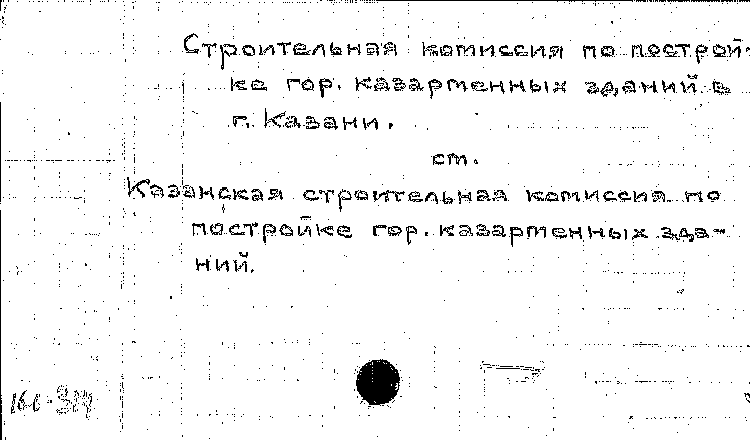 Строительная комиссия по построй-
ке гор. казарменных зданий в
г. Казани.
ст.
Казанская строительная комиссия по
постройке гор. казарменных зда-
ний.